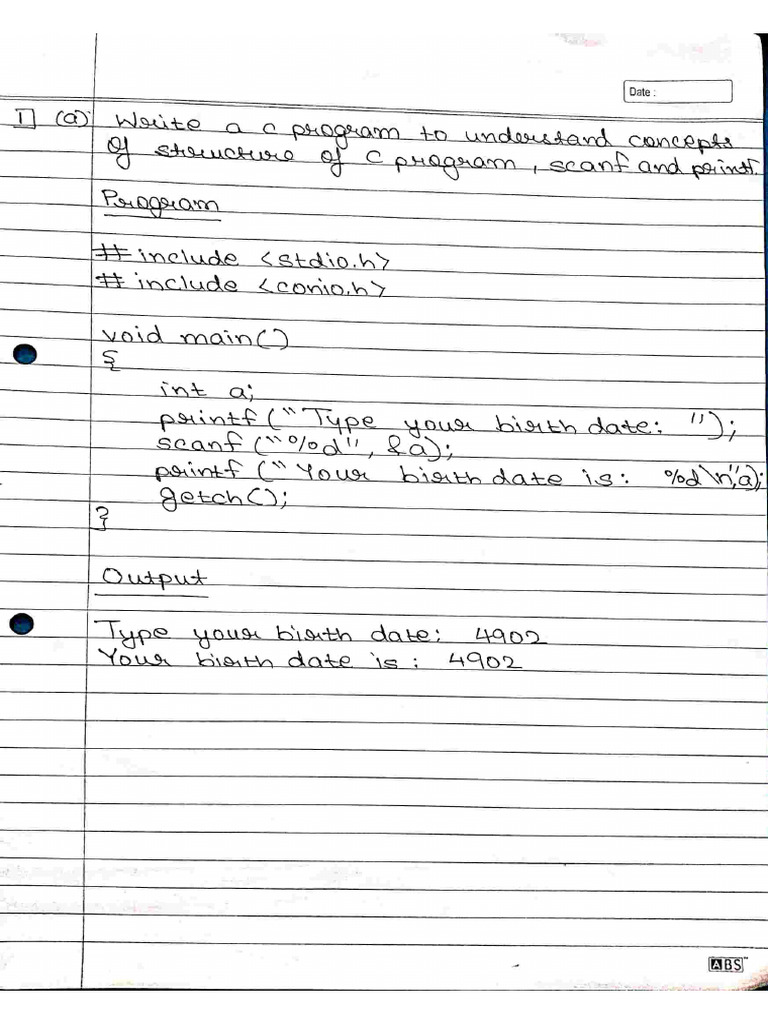 Date :
1] (a) Write a c program to understand concepts
of structure of c program, scanf and printf.
Program
# include <stdio.h>
# include <conio.h>
void main()
{
int a;
printf("Type your birth date: ");
scanf ("%d", &a);
printf ("Your birth date is: %d\n",a);
getch();
}
Output
Type your birth date: 4902
Your birth date is : 4902
ABS